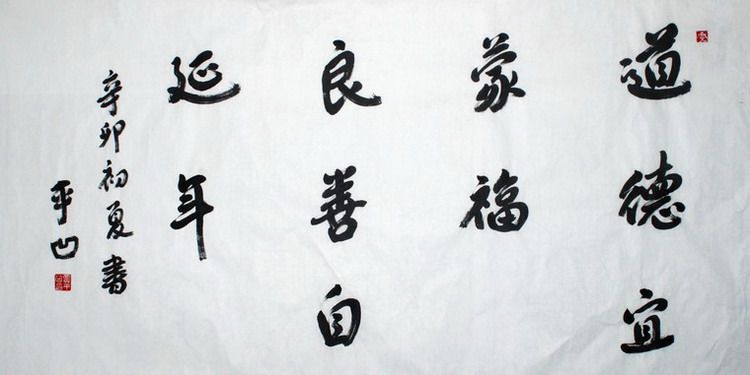 道德宜
蒙福
良善自
延年
辛卯初夏書
平凹